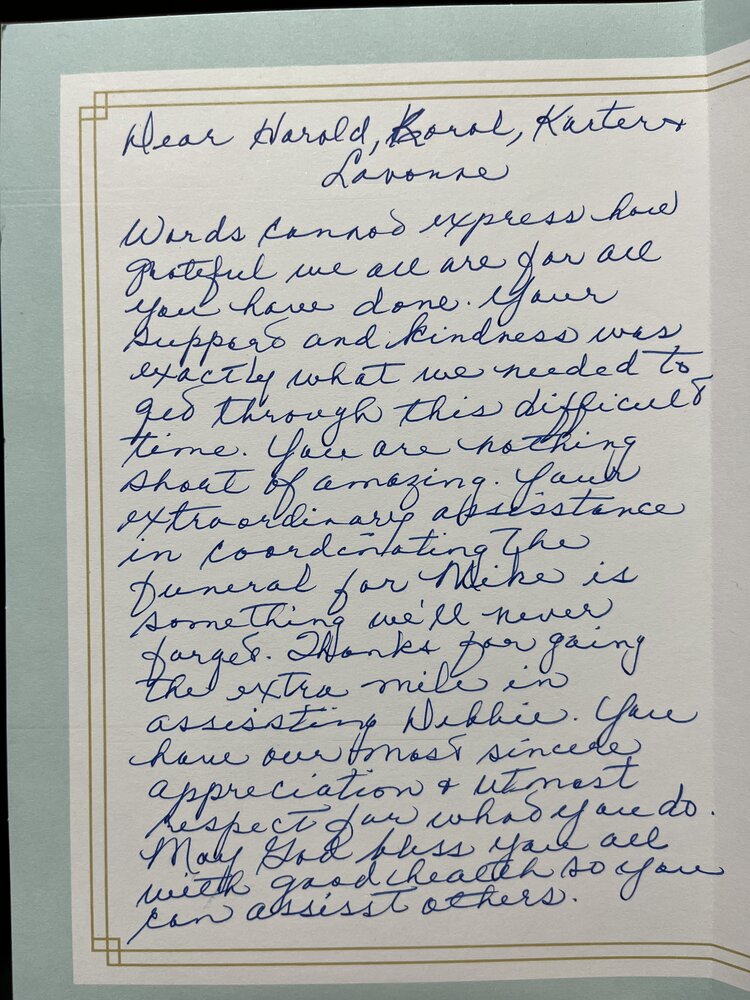 Dear Harold, Karol, Karter +
Lavonne
Words cannot express how
grateful we all are for all
you have done. Your
support and kindness was
exactly what we needed to
get through this difficult
time. You are nothing
short of amazing. Your
extraordinary assisstance
in coordinating the
funeral for Mike is
something we'll never
forget. Thanks for going
the extra mile in
assissting Debbie. You
have our most sincere
appreciation + utmost
respect for what you do.
May God bless you all
with good health so you
can assisst others.